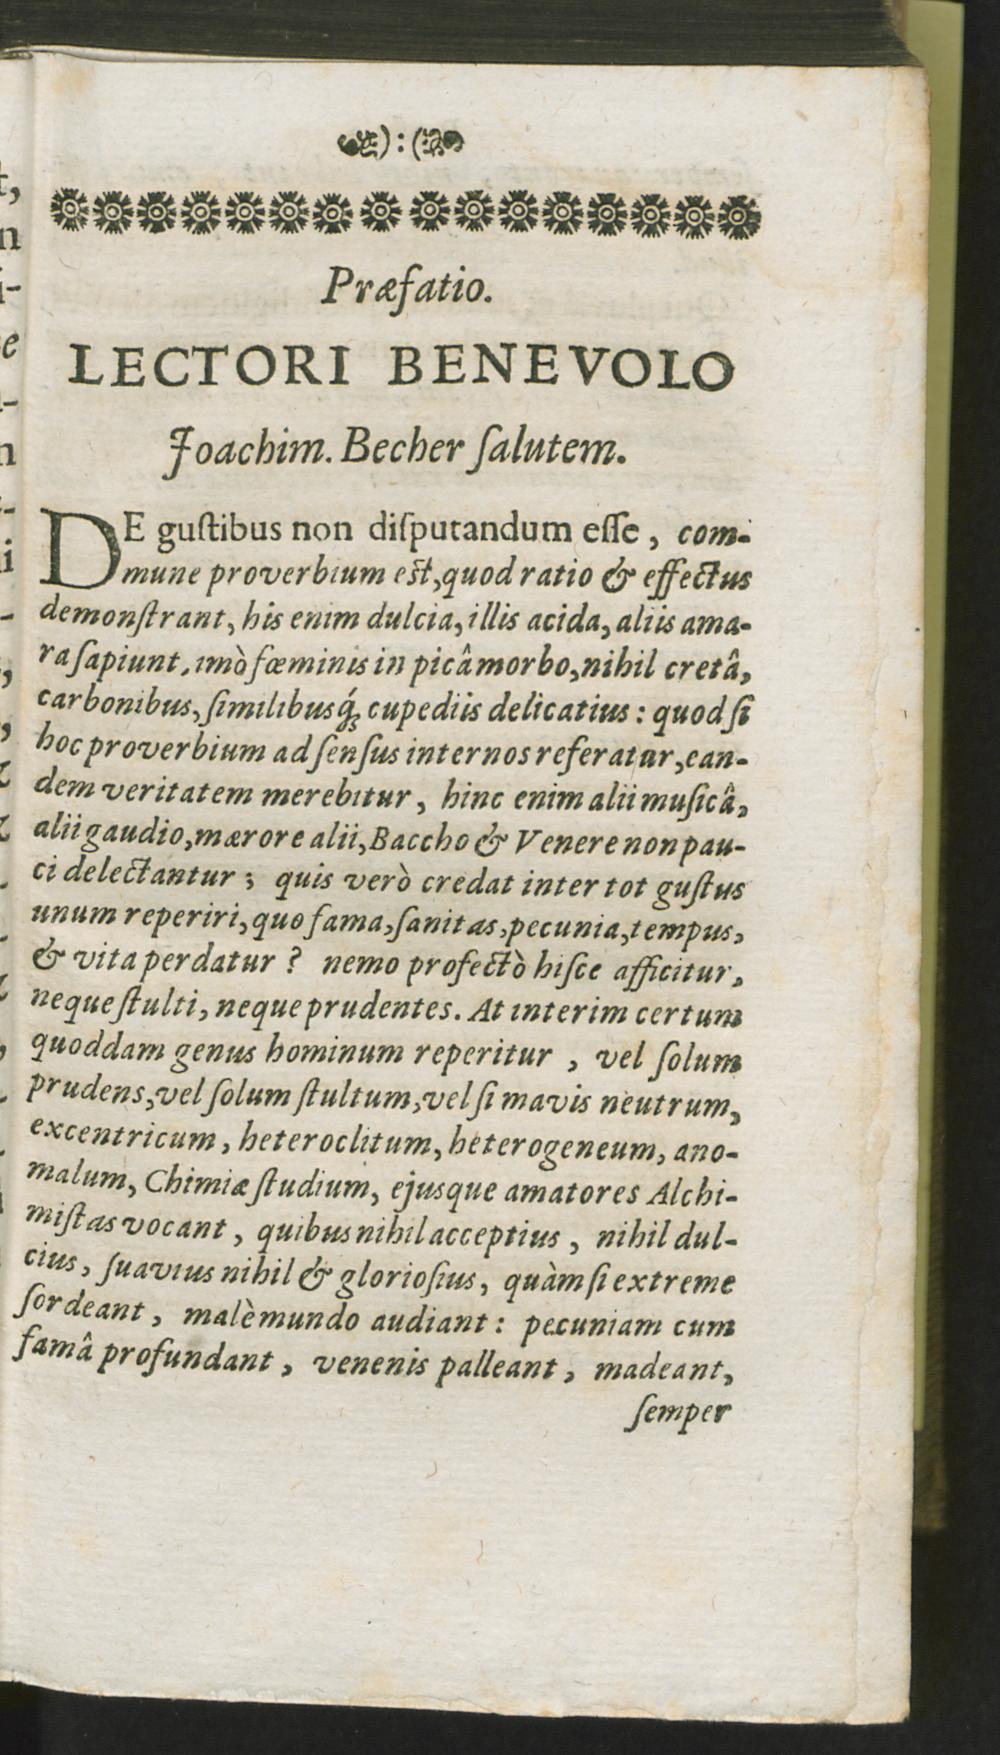 ):(
Præfatio.
LECTORI BENEVOLO
Joachim. Becher ſalutem.
DE guſtibus non diſputandum eſſe, com-
mune proverbium est, quod ratio & effectus
demonſtrant, his enim dulcia, illis acida, aliis ama-
ra ſapiunt, imò fœminis in picâ morbo, nihil cretâ,
carbonibus, ſimilibusq́; cupediis delicatius: quod ſi
hoc proverbium ad ſenſus internos referatur, ean-
dem veritatem merebitur, hinc enim alii muſicâ,
alii gaudio, mærore alii, Baccho & Venere non pau-
ci delectantur; quis verò credat inter tot guſtus
unum reperiri, quo fama, ſanitas, pecunia, tempus,
& vita perdatur? nemo profectò hiſce afficitur,
neque ſtulti, neque prudentes. At interim certum
quoddam genus hominum reperitur, vel ſolum
prudens, vel ſolum ſtultum, vel ſi mavis neutrum,
excentricum, heteroclitum, heterogeneum, ano-
malum, Chimiæ ſtudium, ejusque amatores Alchi-
miſtas vocant, quibus nihil acceptius, nihil dul-
cius, ſuavius nihil & glorioſius, quàm ſi extreme
ſordeant, malè mundo audiant: pecuniam cum
famâ profundant, venenis palleant, madeant,
ſemper